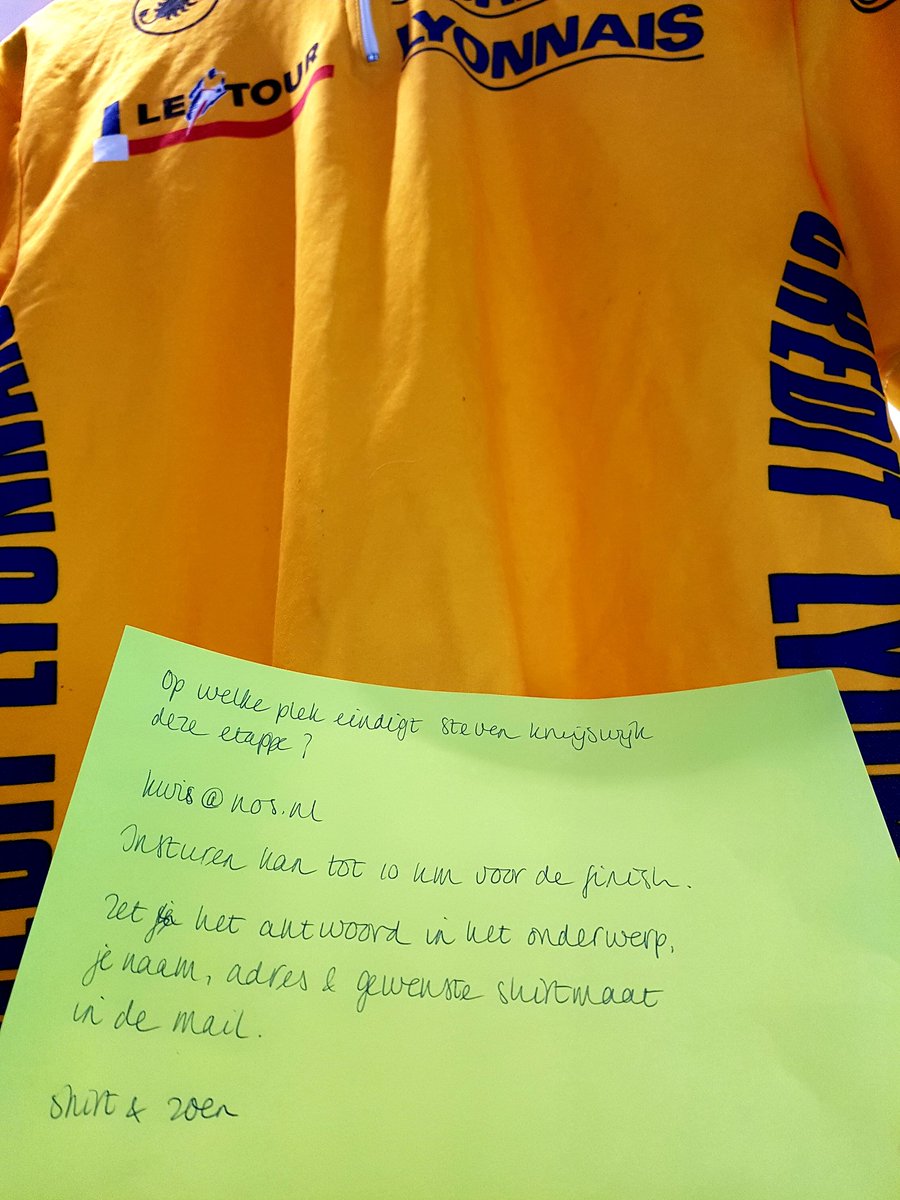 LYONNAIS
LE TOUR
CREDIT LYO
Op welke plek eindigt steven kruijswijk
deze etappe?
kwis@nos.nl
Insturen kan tot 10 km voor de finish.
Zet het antwoord in het onderwerp,
je naam, adres & gewenste shirtmaat
in de mail.
shirt & zoen